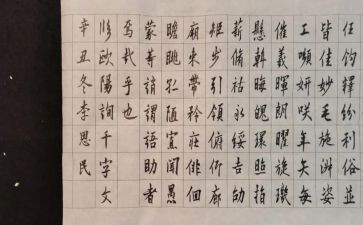 任釣釋紛利俗並
皆佳妙毛施淑姿
工嚬妍咲年矢每
催羲暉朗曜旋璣
懸斡晦魄環照指
薪脩祜永綏吉劭
矩步引領俯仰廊
廟束帶矜莊俳佪
瞻眺孤陋寡聞愚
蒙等誚謂語助者
焉哉乎也
临歐陽詢千字文
辛丑冬李思民